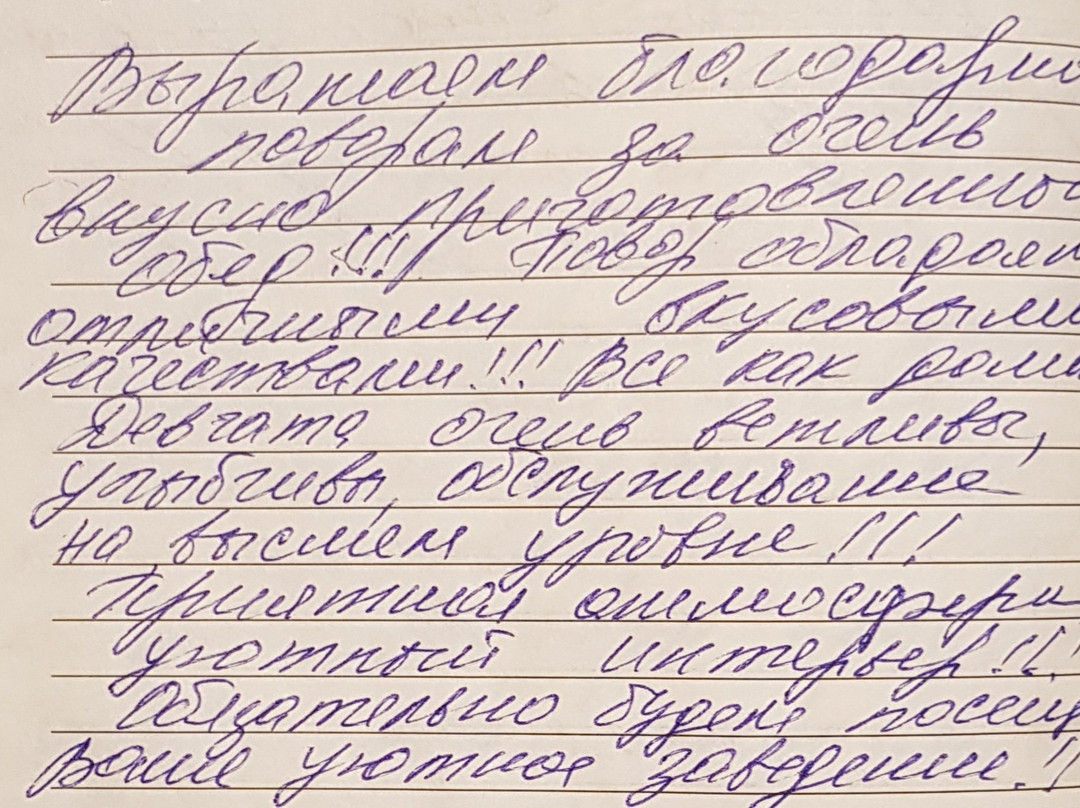 Выражаем благодарно
поварам за очень
вкусно приготовленный
обед!!! Повар обладает
отличными вкусовыми
качествами!!! Все как дома
Девчата очень вежливы,
улыбчивы, обслуживание
на высшем уровне!!!
Приятная атмосфера
уютный интерьер!!!
Обязательно будем посещ
Ваше уютное заведение!!